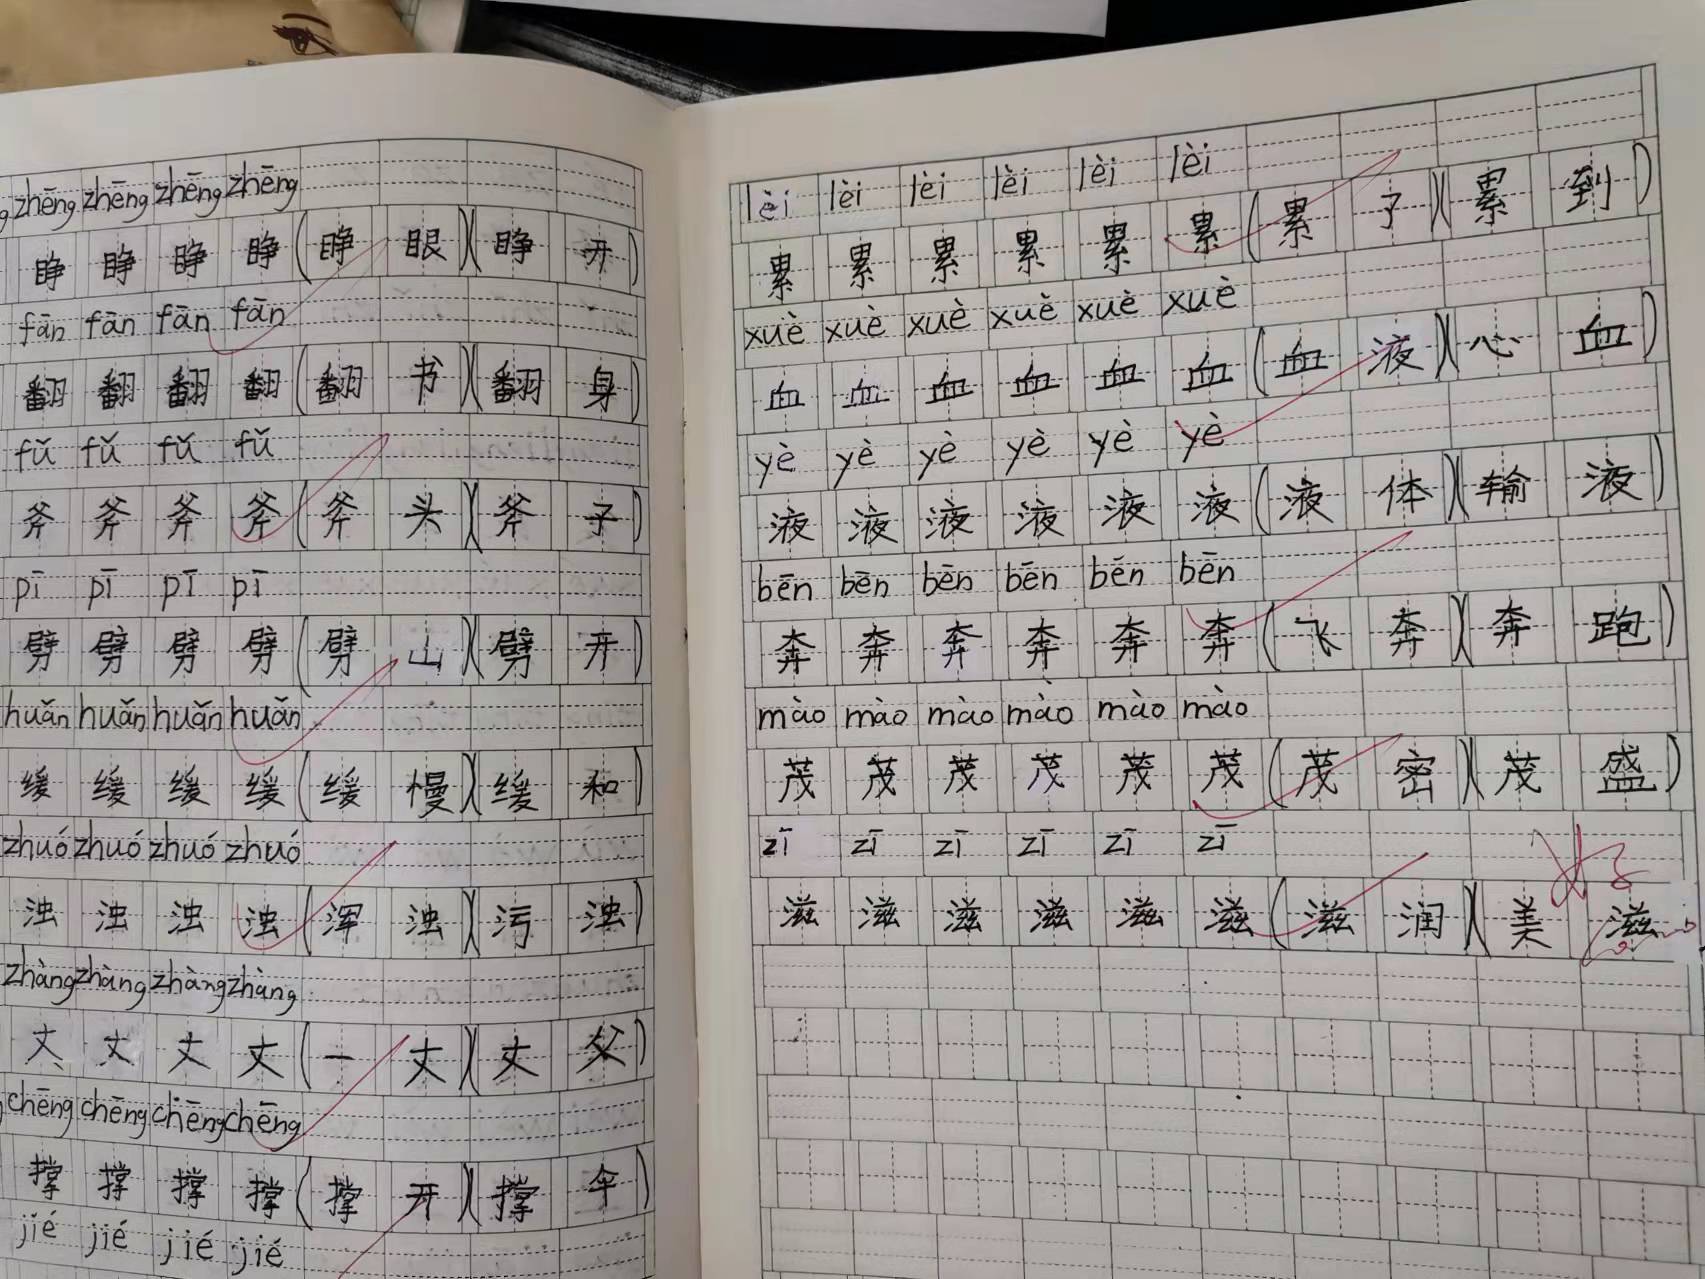 zhēng zhēng zhēng zhēng
睁 睁 睁 睁 (睁 眼)(睁 开)
fān fān fān fān
翻 翻 翻 翻 (翻 书)(翻 身)
fǔ fǔ fǔ fǔ
斧 斧 斧 斧 (斧 头)(斧 子)
pī pī pī pī
劈 劈 劈 劈 (劈 山)(劈 开)
huǎn huǎn huǎn huǎn
缓 缓 缓 缓 (缓 慢)(缓 和)
zhuó zhuó zhuó zhuó
浊 浊 浊 浊 (浑 浊)(污 浊)
zhàng zhàng zhàng zhàng
丈 丈 丈 丈 (一 丈)(丈 父)
chēng chēng chēng chēng
撑 撑 撑 撑 (撑 开)(撑 伞)
jié jié jié jié
lèi lèi lèi lèi lèi lèi
累 累 累 累 累 累 (累 了)(累 到)
xuè xuè xuè xuè xuè xuè
血 血 血 血 血 血 (血 液)(心 血)
yè yè yè yè yè yè
液 液 液 液 液 液 (液 体)(输 液)
bēn bēn bēn bēn bēn bēn
奔 奔 奔 奔 奔 奔 (飞 奔)(奔 跑)
mào mào mào mào mào mào
茂 茂 茂 茂 茂 茂 (茂 密)(茂 盛)
zī zī zī zī zī zī
滋 滋 滋 滋 滋 滋 (滋 润)(美 滋
好